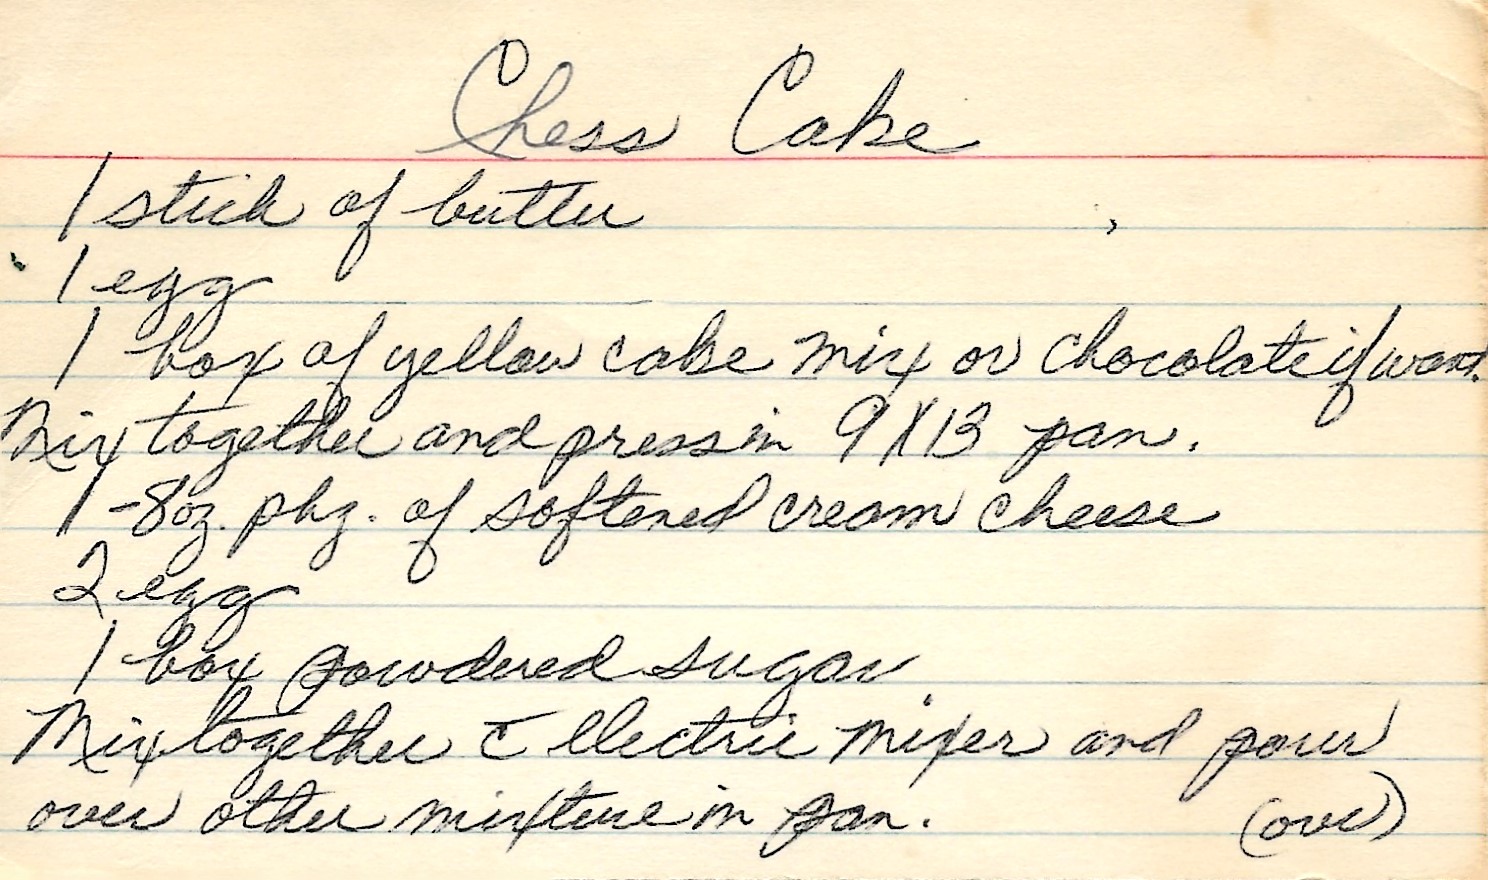 Chess Cake
1 stick of butter
1 egg
1 box of yellow cake mix or chocolate if want.
Mix together and press in 9X13 pan.
1-8oz. pkg. of softened cream cheese
2 egg
1 box powdered sugar.
Mix together c̄ electric mixer and pour
over other mixture in pan. (over)